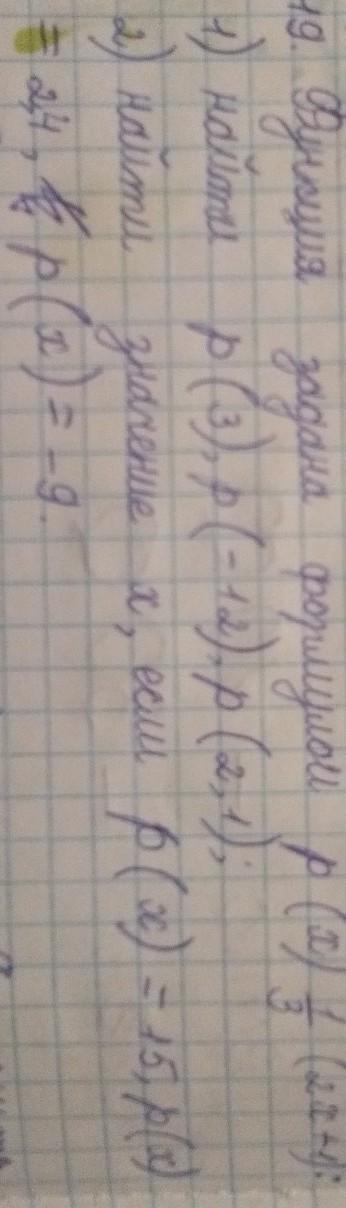 19. Функция задана формулой p(x) 1/3 (2x+1);
1) найти p(3), p(-12), p(2,1);
2) найти значение x, если p(x) = -15, p(x)
= 2,4, p(x) = -9.